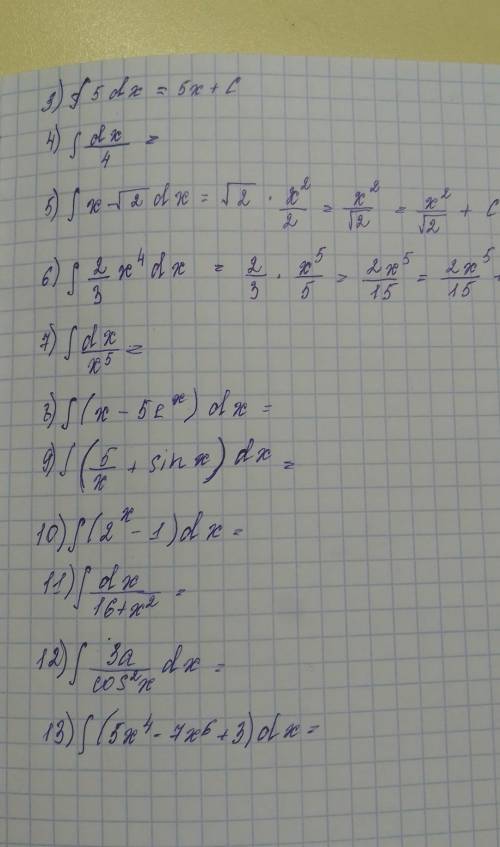 3) ∫ 5 dx = 5x + C
4) ∫ dx/4 =
5) ∫ x √2 dx = √2 · x²/2 = x²/√2 = x²/√2 + C
6) ∫ 2/3 x⁴ dx = 2/3 · x⁵/5 = 2x⁵/15 = 2x⁵/15 +
7) ∫ dx/x⁵ =
8) ∫ (x - 5e^x) dx =
9) ∫ (5/x + sin x) dx =
10) ∫ (2^x - 1) dx =
11) ∫ dx/(16+x²) =
12) ∫ 3a/cos²x dx =
13) ∫ (5x⁴ - 7x⁶ + 3) dx =